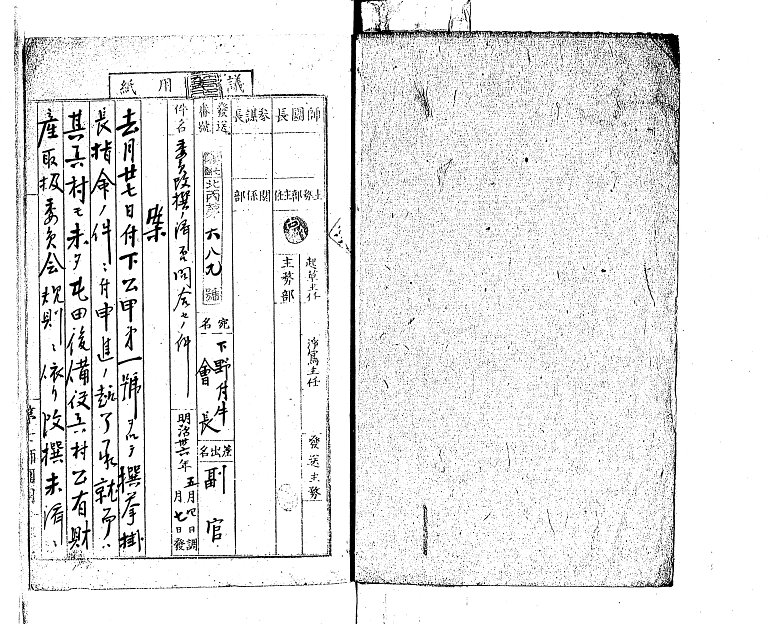 議用紙
師團長
參謀長
主務部主任
關係部
起草主任
淨寫主任
發送主務
主務部
發送番號
北丙第六八九號
宛名
下野付牛會長
差出名
副官
件名
委員改撰ノ濟否問合セノ件
明治卅六年五月四日調
月七日發
案
去月廿七日付下乙甲第一號ヲ以テ撰挙掛
長指令ノ件ニ付申進ノ趣了承就而ハ
其兵村モ未タ屯田後備役兵村公有財
産取扱委員会規則ニ依リ改撰未濟ニ